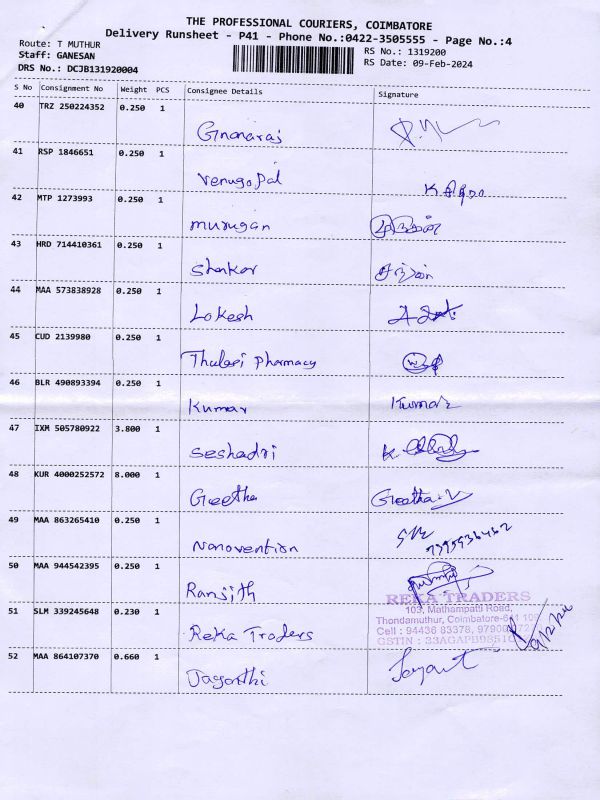 THE PROFESSIONAL COURIERS, COIMBATORE
Delivery Runsheet - P41 - Phone No.:0422-3505555 - Page No.:4
Route: T MUTHUR
Staff: GANESAN
DRS No.: DCJB131920004
RS No.: 1319200
RS Date: 09-Feb-2024
S No Consignment No Weight PCS Consignee Details Signature
40 TRZ 250224352 0.250 1
Gnanaraj
41 RSP 1846651 0.250 1
Venugopal
42 MTP 1273993 0.250 1
murugan முருகன்
43 HRD 714410361 0.250 1
Shankar
44 MAA 573838928 0.250 1
Lokesh
45 CUD 2139980 0.250 1
Thulasi Pharmacy
46 BLR 490893394 0.250 1
Kumar Kumar
47 IXM 505780922 3.800 1
Seshadri
48 KUR 4000252572 8.000 1
Geetha Geetha.V
49 MAA 863265410 0.250 1
Nanovention
50 MAA 944542395 0.250 1
Ranjith
51 SLM 339245648 0.230 1
Reka Traders
REKA TRADERS
103, Mathampatti Road,
Thondamuthur, Coimbatore-641 109
Cell : 94436 83378,
GSTIN :
9/2/24
52 MAA 864107370 0.660 1
Jaganthi